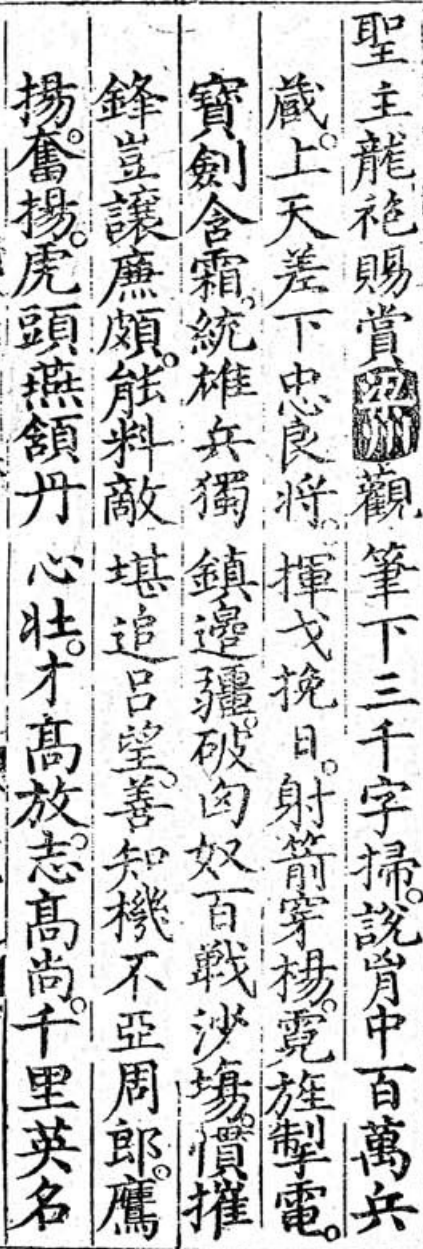 聖主龍袍賜賞梁州觀筆下三千字掃。說胷中百萬兵
藏。上天差下忠良将。揮戈挽日。射箭穿楊。霓旌掣電。
寳劍含霜。統雄兵獨鎮邊疆。破匈奴百戰沙塲。慣摧
鋒豈讓廉頗。能料敵堪追吕望。善知機不亞周郎。鷹
揚。奮揚。虎頭燕頷丹心壯。才髙放。志髙尚。千里英名